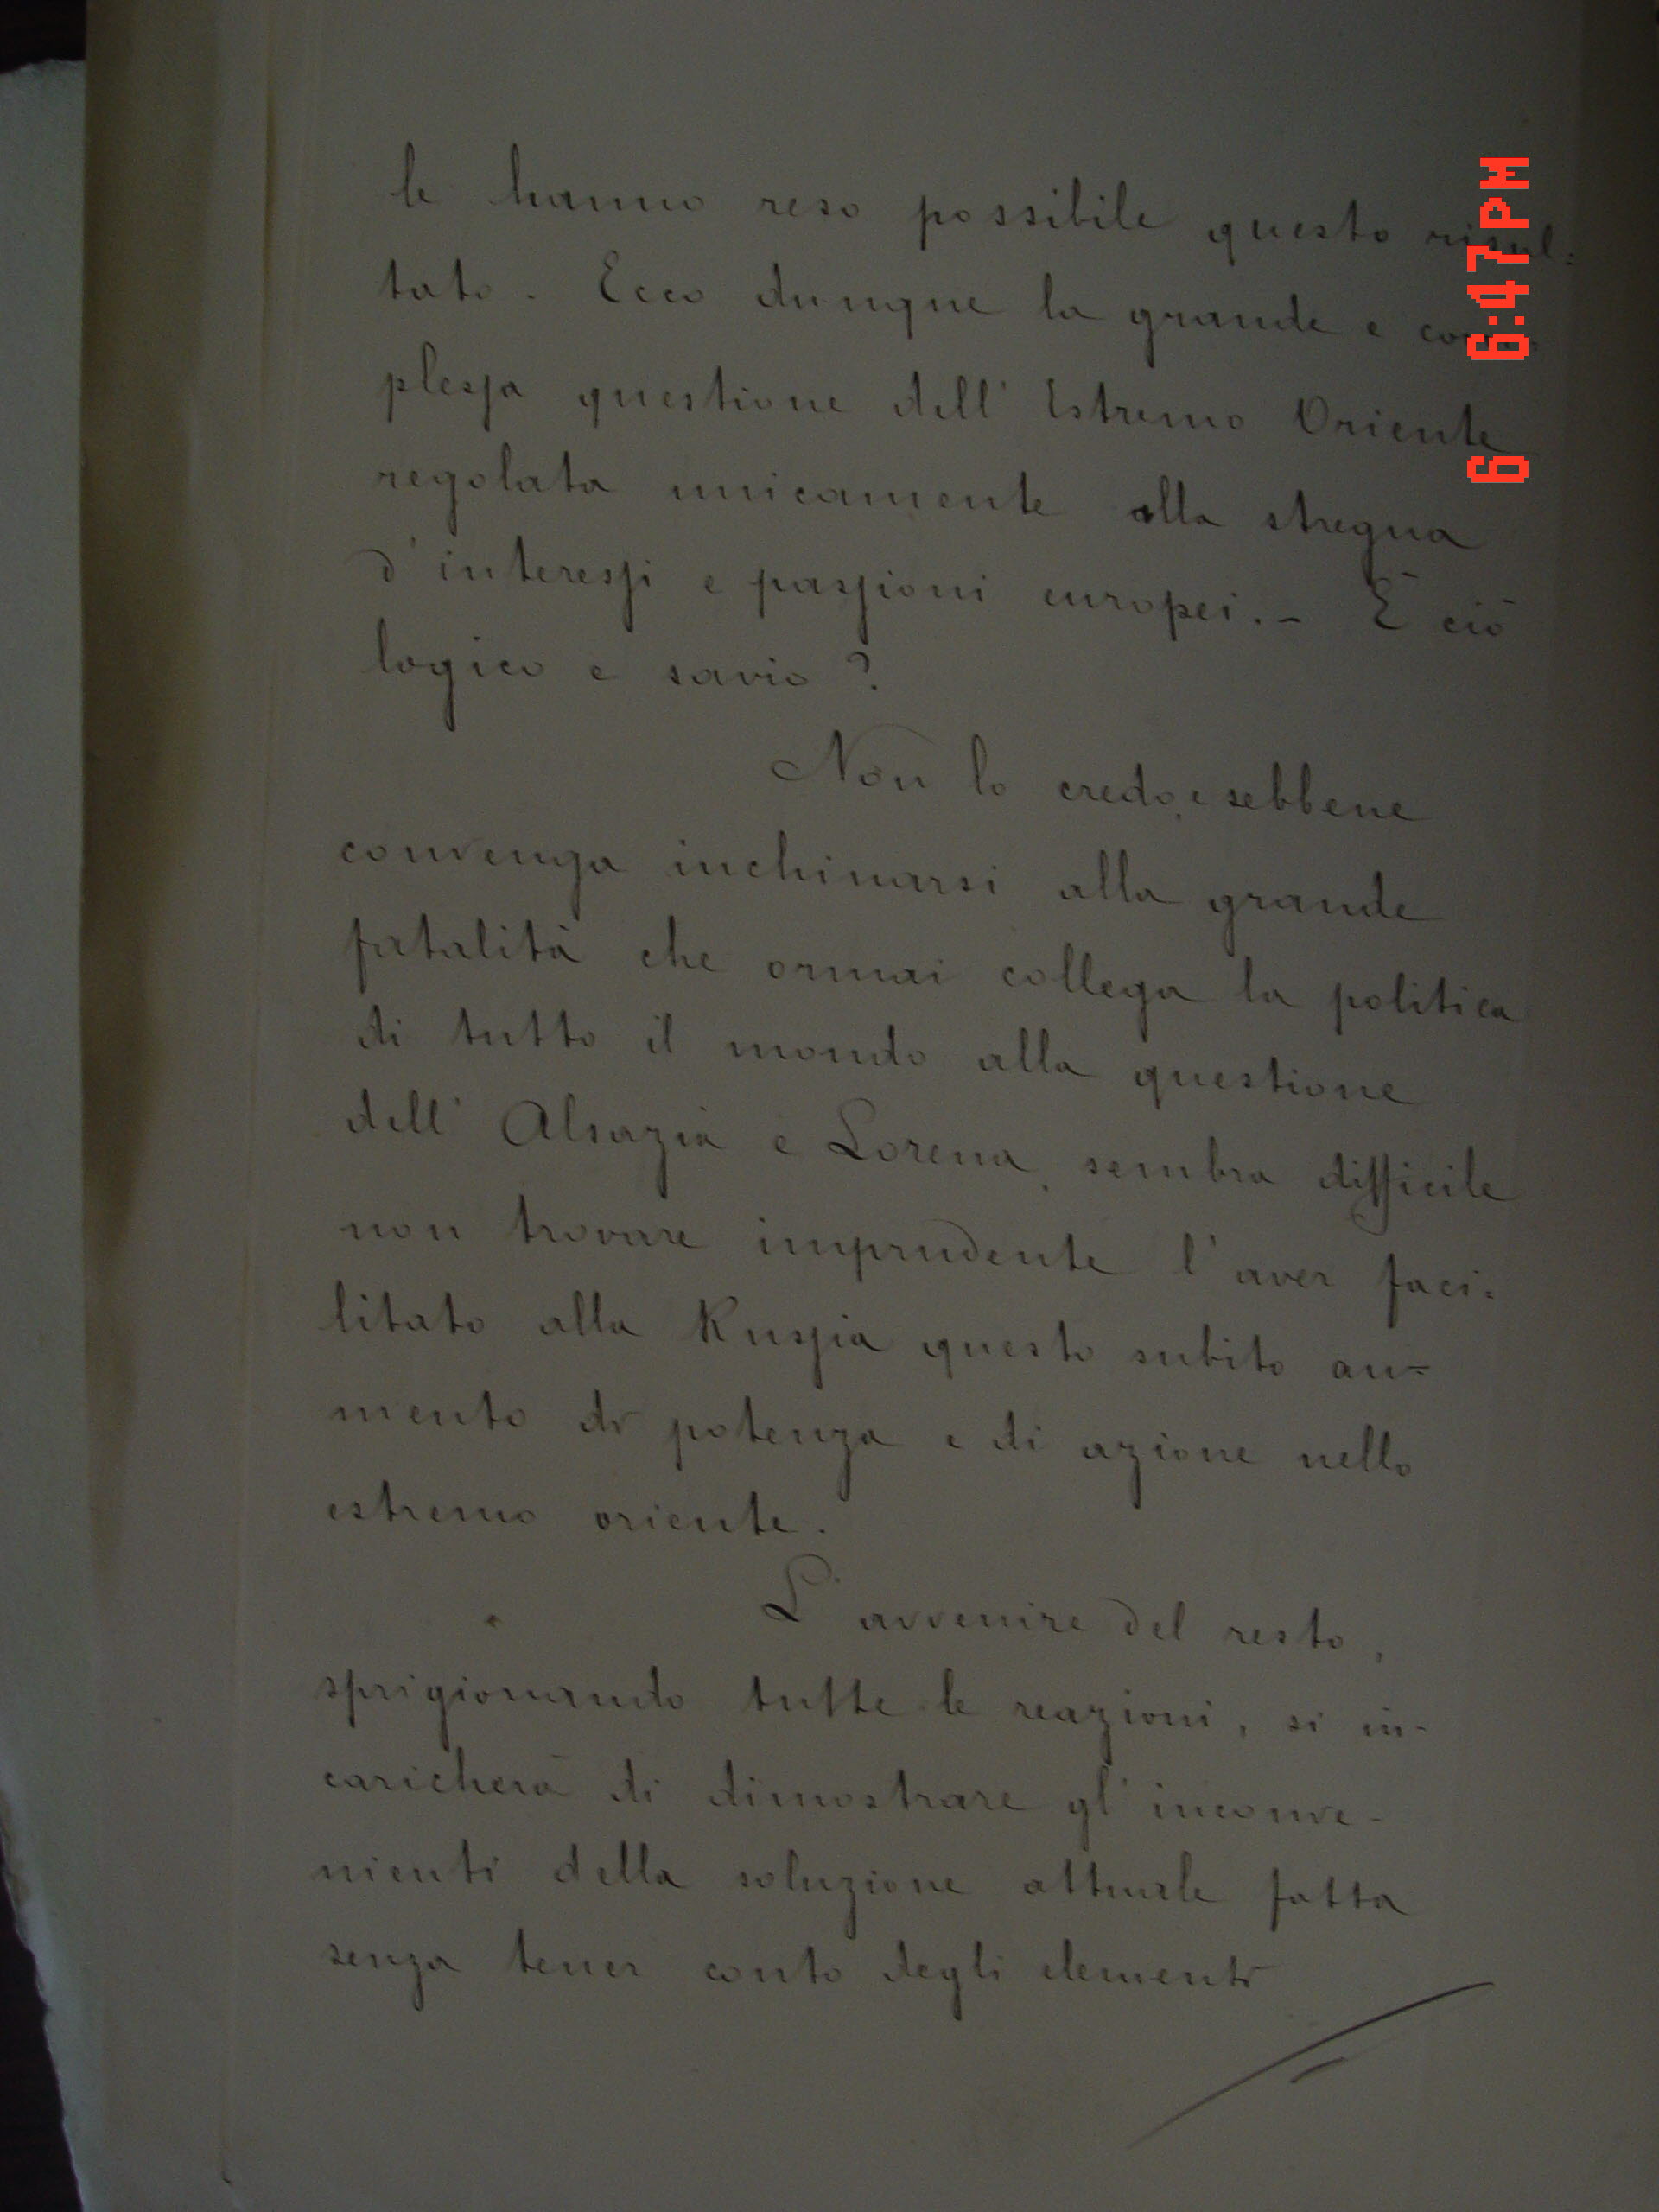 le hanno reso possibile questo risul=
tato. Ecco dunque la grande e com=
plessa questione dell' Estremo Oriente
regolata unicamente alla stregua
d'interessi e passioni europei. - È ciò
logico e savio?
Non lo credo, e sebbene
convenga inchinarsi alla grande
fatalità che ormai collega la politica
di tutto il mondo alla questione
dell' Alsazia e Lorena, sembra difficile
non trovare imprudente l'aver faci=
litato alla Russia questo subito au=
mento di potenza e di azione nello
estremo oriente.
L'avvenire del resto,
sprigionando tutte le reazioni, si in-
caricherà di dimostrare gl'inconve-
nienti della soluzione attuale fatta
senza tener conto degli elementi
6 6:47PM